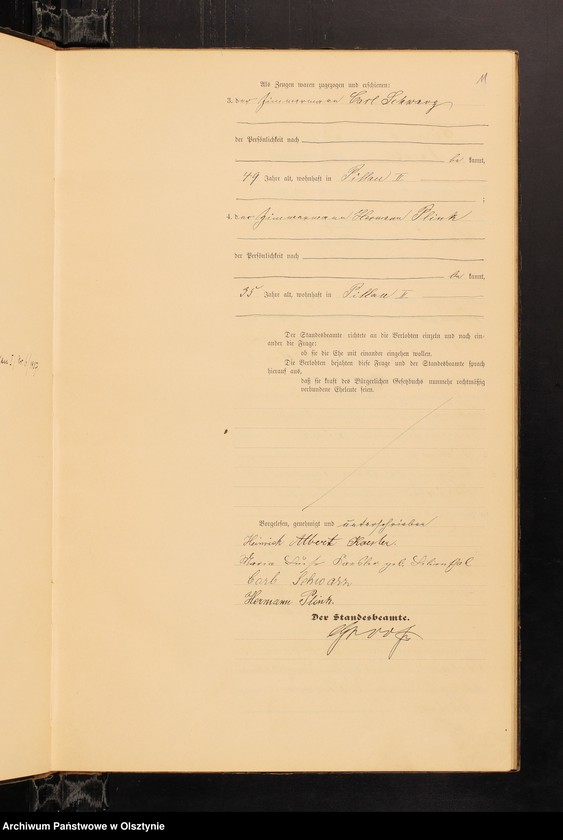 11
Als Zeugen waren zugezogen und erschienen:
3. der Zimmermann Carl Schwarz
der Persönlichkeit nach
be kannt,
49 Jahre alt, wohnhaft in Pillau II
;
4. der Zimmermann Hermann Plink
der Persönlichkeit nach
be kannt,
35 Jahre alt, wohnhaft in Pillau II
Der Standesbeamte richtete an die Verlobten einzeln und nach ein-
ander die Frage:
ob sie die Ehe mit einander eingehen wollen.
Die Verlobten bejahten diese Frage und der Standesbeamte sprach
hierauf aus,
daß sie kraft des Bürgerlichen Gesetzbuchs nunmehr rechtmäßig
verbundene Eheleute seien.
Vorgelesen, genehmigt und unterschrieben
Heinrich Albert Kaesler
Maria Kaesler geb. Lilienthal
Carl Schwarz
Hermann Plink.
Der Standesbeamte.
Archiwum Państwowe w Olsztynie